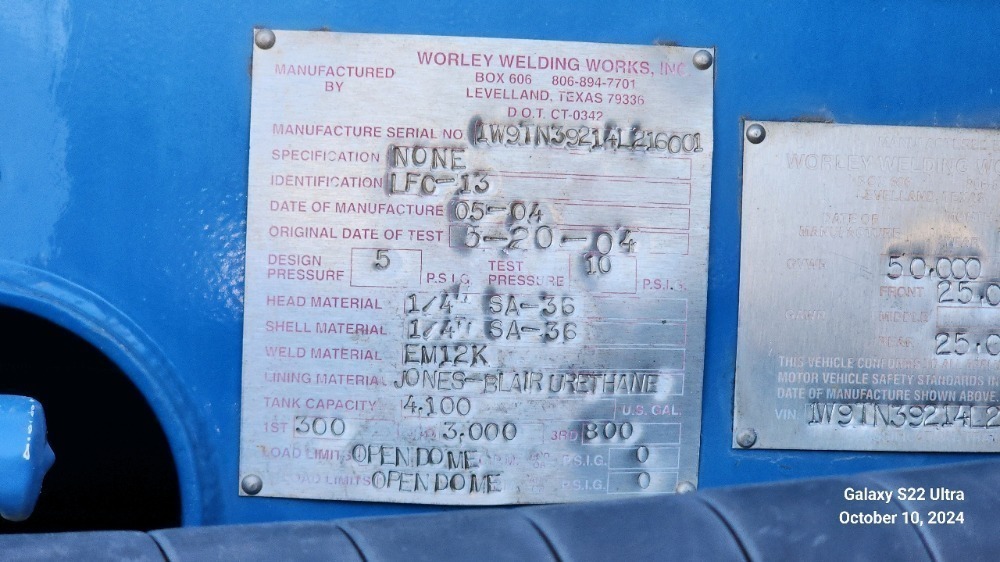 WORLEY WELDING WORKS, INC
MANUFACTURED BY
BOX 606 806-894-7701
LEVELLAND, TEXAS 79336
D.O.T. CT-0342
MANUFACTURE SERIAL NO 1W9TN39214L216001
SPECIFICATION NONE
IDENTIFICATION LFC-13
DATE OF MANUFACTURE 05-04
ORIGINAL DATE OF TEST 5-20-04
DESIGN PRESSURE 5 P.S.I.G. TEST PRESSURE 10 P.S.I.G.
HEAD MATERIAL 1/4" SA-36
SHELL MATERIAL 1/4" SA-36
WELD MATERIAL EM12K
LINING MATERIAL JONES-BLAIR URETHANE
TANK CAPACITY 4,100 U.S. GAL.
1ST 300 3,000 3RD 800
LOAD LIMITS OPEN DOME P.S.I.G. 0
LIMITS OPEN DOME P.S.I.G. 0
WORLEY WELDING W
LEVELLAND, TEXAS
DATE OF
MANUFACTURE
GVWR 50,000
FRONT 25,0
GAWR MIDDLE
REAR 25,0
THIS VEHICLE CONFORMS TO ALL
MOTOR VEHICLE SAFETY STANDARDS IN
DATE OF MANUFACTURE SHOWN ABOVE.
VIN 1W9TN39214L2
Galaxy S22 Ultra
October 10, 2024